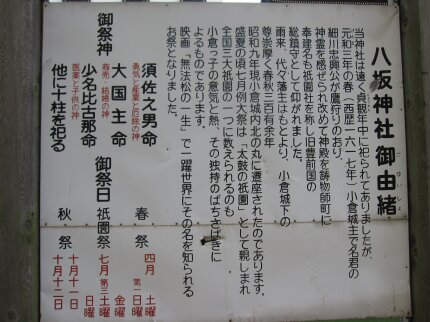 八坂神社御由緒
当神社は遠く貞観年中に祀られてありましたが、
元和三年の春（西歴一六一七年）小倉城主で名君の
細川忠興公が鷹狩りのおり、
神霊を感ぜられ改めて神殿を鋳物師町に
奉建名も祇園社を称し旧豊前国の
総鎮守として仰がれました。
雨来、代々藩主はもとより、小倉城下の
尊崇厚く春秋三百有余年
昭和九年現小倉城内北の丸に遷座されたのであります。
盛夏の頃七月例大祭は「太鼓の祇園」として親しまれ
全国三大祇園の一つに数えられるのも
小倉っ子の意気と熱、その独特のばちさばきに
よるものであります。
映画「無法松の一生」で一躍世界にその名を知られる
お祭となりました。
御祭神
須佐之男命
勇気と産業と厄除の神
大国主命
商売・結婚の神
少名比古那命
医薬と子供の神
他に十柱を祀る
御祭日
春祭 四月 第一 土曜 日曜
祇園祭 七月 第三 金曜 土曜 日曜
秋祭 十月十一日 十月十二日